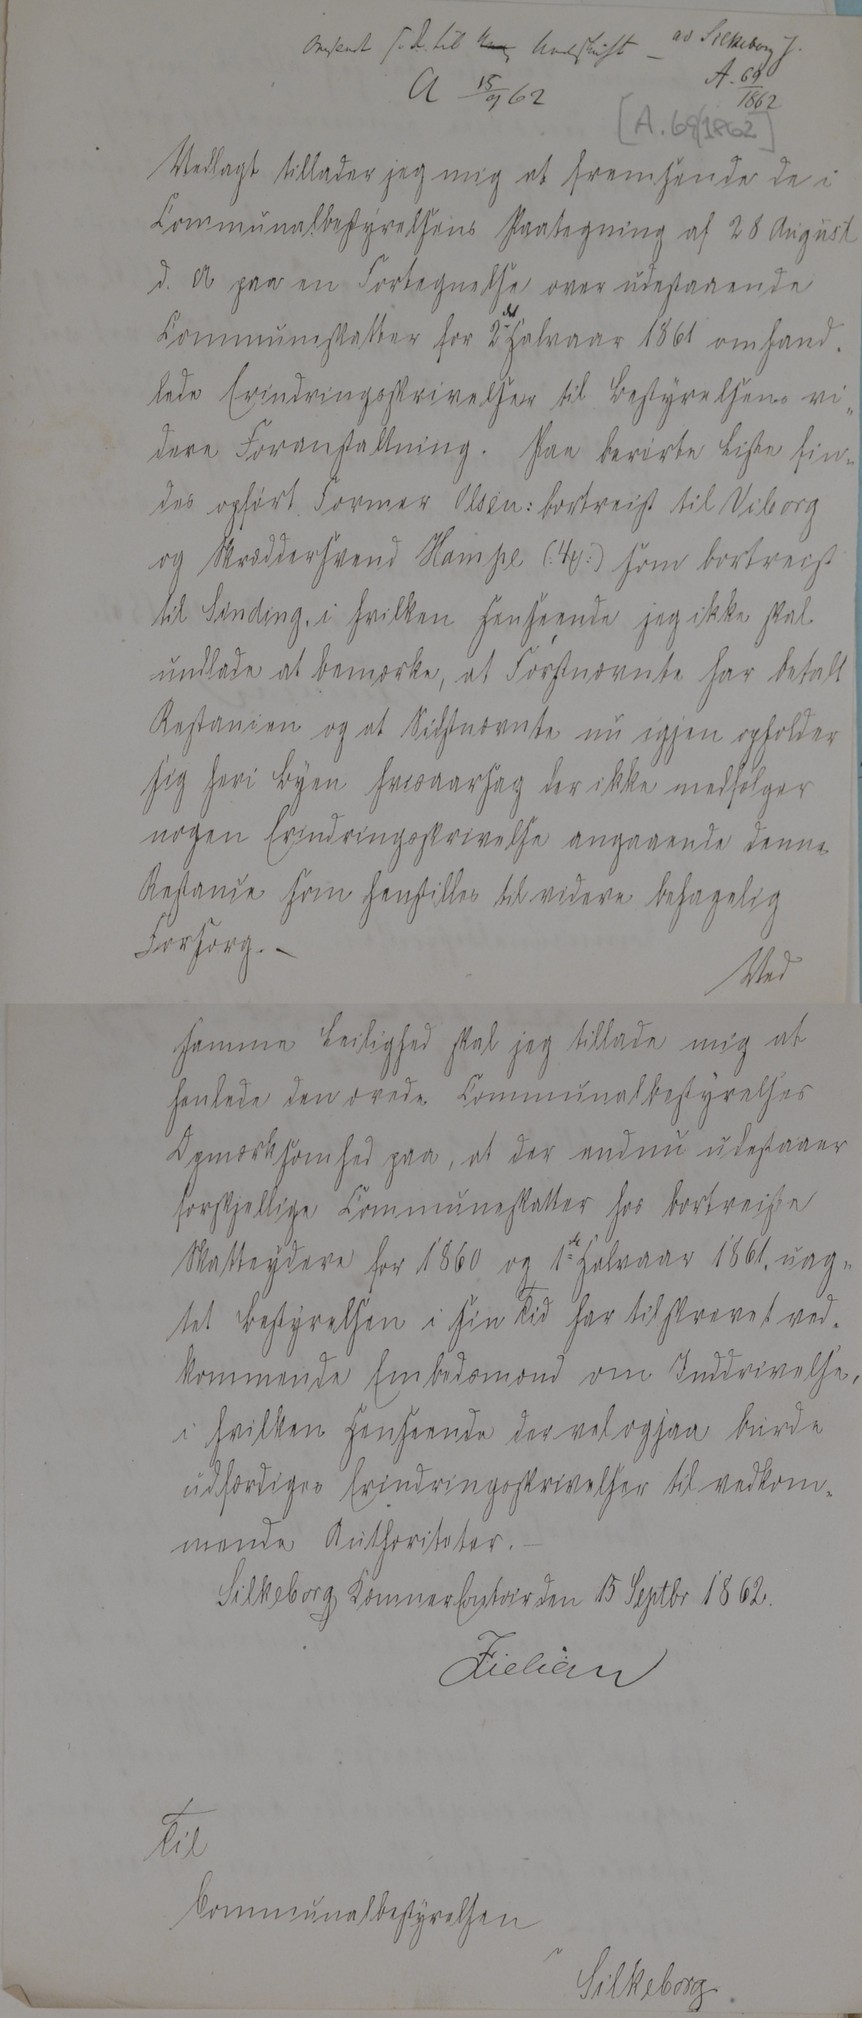 til Underskrift – ad Silkeborg J.
A 15/9 62
A. 69/1862
[A. 69/1862]
Vedlagt tillader jeg mig at fremsende de i
Communalbestyrelsens Paategning af 28 August
d. A paa en Fortegnelse over udestaaende
Communeskatter for 2det Halvaar 1861 omhand-
lede Erindringsskrivelser til Bestyrelsens vi-
dere Foranstaltning. Paa berørte Liste fin-
des opført Former Olsen: bortreist til Viborg
og Skræddersvend Hampe som bortreist
til Sinding, i hvilken Henseende jeg ikke skal
undlade at bemærke, at Førstnævnte har betalt
Restancen og at Sidstnævnte nu igjen opholder
sig heri Byen hvisaarsag der ikke medfølger
nogen Erindringsskrivelse angaaende denne
Restance som henstilles til videre behagelig
Forsorg. –
Ved
samme Leilighed skal jeg tillade mig at
henlede den ærede Communalbestyrelses
Opmærksomhed paa, at der endnu udestaaer
forskjellige Communeskatter hos bortreiste
Skatteydere for 1860 og 1ste Halvaar 1861, uag-
tet Bestyrelsen i sin Tid har tilskrevet ved-
kommende Embedsmænd om Inddrivelse,
i hvilken Henseende der vel ogsaa burde
udfærdiges Erindringsskrivelser til vedkom-
mende Authoriteter. –
Silkeborg Kæmnercontoir den 15 Septbr 1862.
Zielian
Til
Communalbestyrelsen
i
Silkeborg.